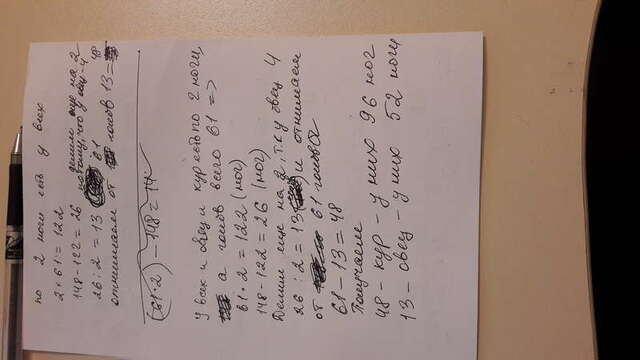 по 2 ноги есть у всех
2×61=122
148-122=26 делим еще на 2
26:2=13 потому, что у овец-4
отнимаем от 61 голов 13=48
(61·2)-148=14
У всех и овец и кур есть по 2 ноги,
а голов всего 61 =>
61·2=122 (ног)
148-122=26 (ног)
Делим еще на 2, т.к у овец 4
26:2=13 и отнимаем
от 61 голова
61-13=48
Получаем
48-кур-у них 96 ног
13-овец-у них 52 ногу